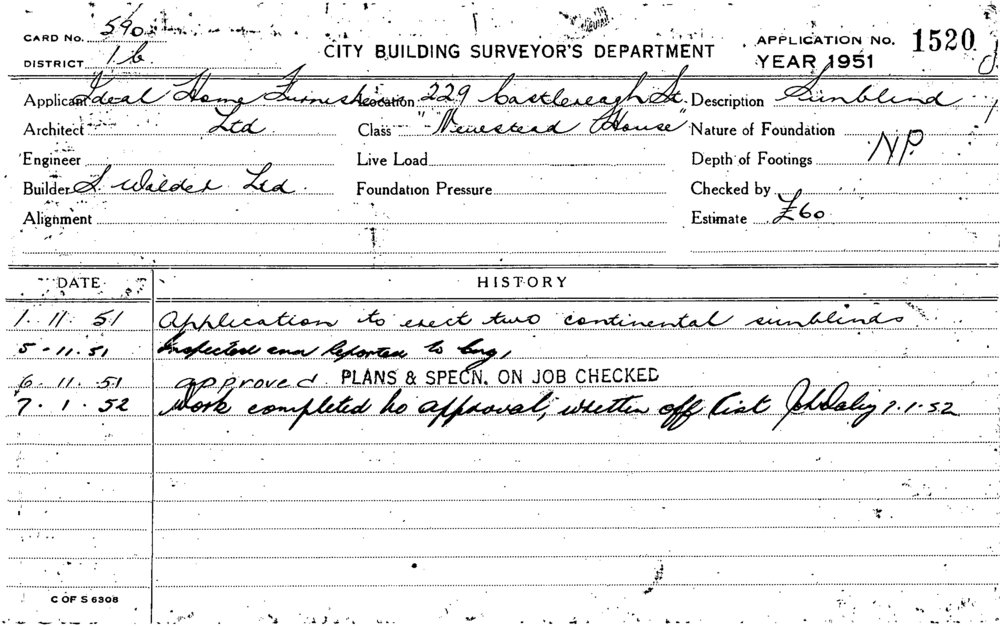 CARD No. 590
DISTRICT 1b
CITY BUILDING SURVEYOR'S DEPARTMENT
APPLICATION No. 1520
YEAR 1951
Applicant Ideal Home Furnish Location 229 Castlereagh St. Description Sunblind
Architect Ltd Class "Newstead House" Nature of Foundation
Engineer Live Load Depth of Footings NP.
Builder S. Walder Ltd Foundation Pressure Checked by
Alignment Estimate £60
DATE HISTORY
1. 11. 51 Application to erect two continental sunblinds
5-11.51 Inspected and Reported to Eng,
6. 11. 51 approved PLANS & SPECN. ON JOB CHECKED
7. 1. 52 Work completed to approval, written off list 7.1.52
C OF S 6308